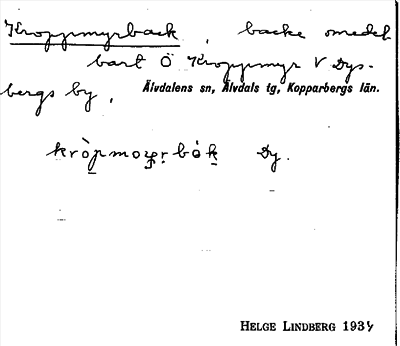 Kroppmyrback, backe omedel
bart Ö Kroppmyr V Dys-
bergs by.
Älvdalens sn, Älvdals tg, Kopparbergs län.
Dy.
HELGE LINDBERG 1934